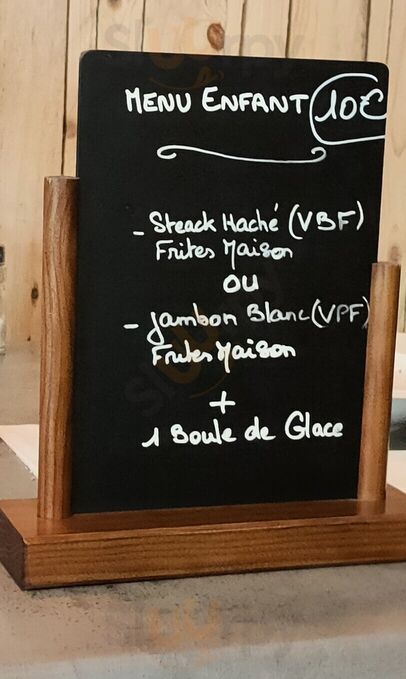 MENU ENFANT 10€
- Steack Haché (VBF)
Frites Maison
OU
- Jambon Blanc (VPF)
Frites Maison
+
1 Boule de Glace